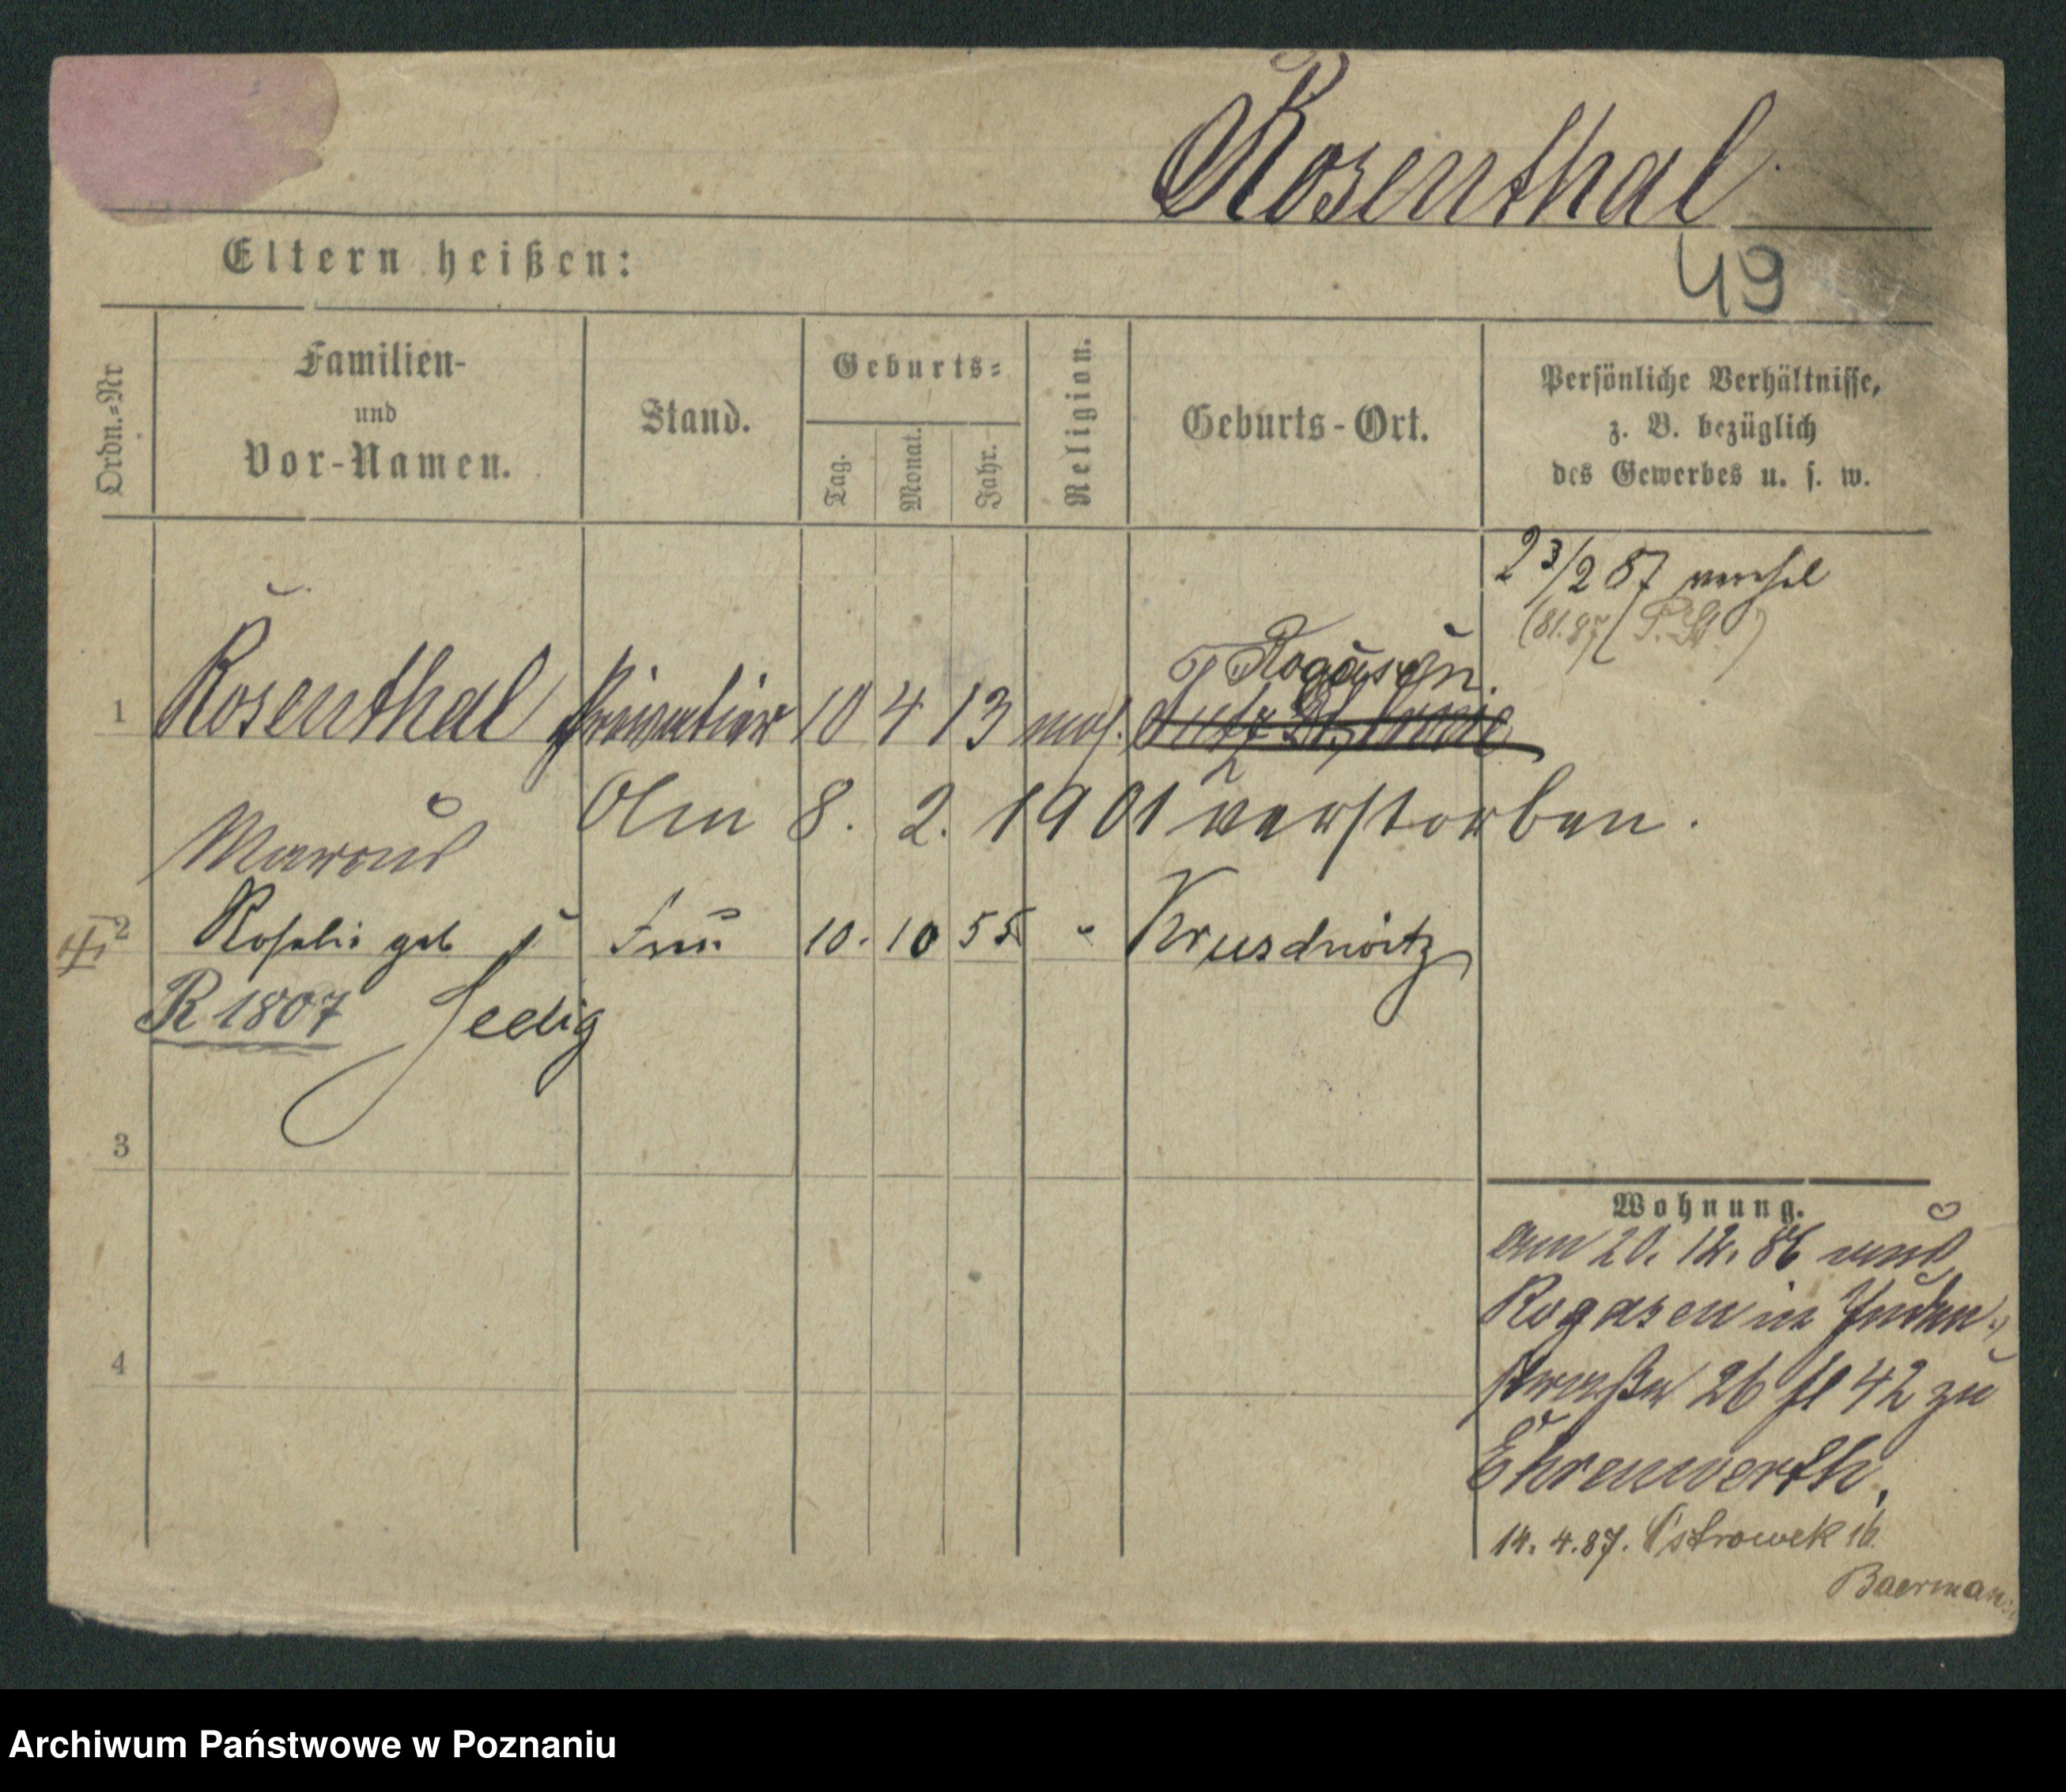 Rosenthal
Eltern heißen:
49
Ordn.=Nr
Familien-
und
Vor-Namen.
Stand.
Geburts=
Tag.
Monat.
Jahr.
Religion.
Geburts-Ort.
Persönliche Verhältnisse,
z. B. bezüglich
des Gewerbes u. s. w.
23/2 87
Rogasen
1 Rosenthal Privatier 10 4 13 mos.
Am 8. 2. 1901 verstorben.
Marcus
2 Rosalie geb Frau 10. 10 55 " Kruschwitz
R 1807 Seelig
3
4
Wohnung.
am 20. 12. 86 aus
Rogasen in Juden-
straße 26 fl 42 zu
Ehrenwerth.
14. 4. 87. Ostrowek 16.
Baermann
Archiwum Państwowe w Poznaniu